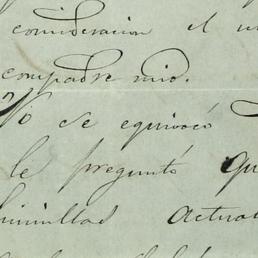 consideracion el
compadre mio.
No se equivocó
le preguntó qu
actua